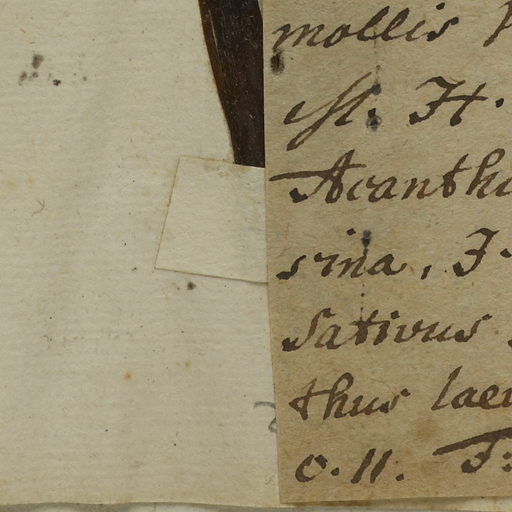 mollis
H.
Acanth
sina, J.
sativus
thus lae
c. 11. J: